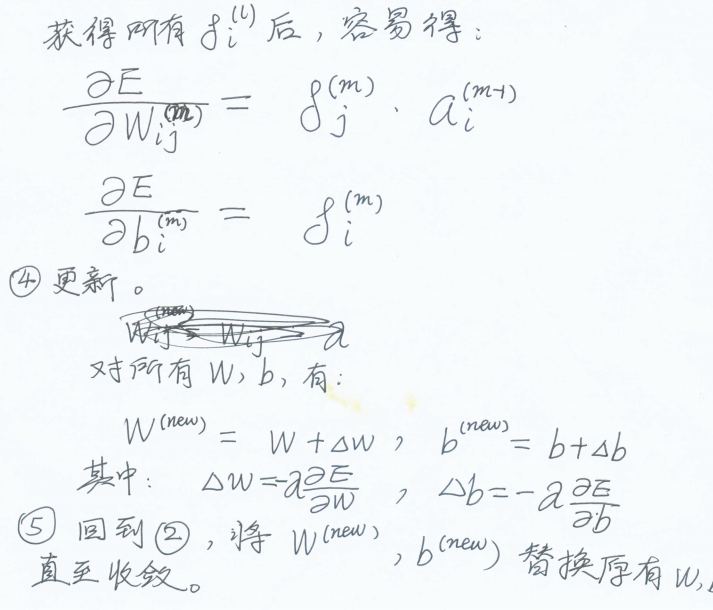 获得所有 δᵢ⁽ˡ⁾ 后，容易得：
∂E/∂Wᵢⱼ⁽ᵐ⁾ = δⱼ⁽ᵐ⁾ · aᵢ⁽ᵐ⁻¹⁾
∂E/∂bᵢ⁽ᵐ⁾ = δᵢ⁽ᵐ⁾
④ 更新。
对所有 W, b, 有：
W⁽ⁿᵉʷ⁾ = W + ΔW , b⁽ⁿᵉʷ⁾ = b + Δb
其中： ΔW = -a ∂E/∂W , Δb = -a ∂E/∂b
⑤ 回到②，将 W⁽ⁿᵉʷ⁾, b⁽ⁿᵉʷ⁾ 替换原有 W,
直至收敛。